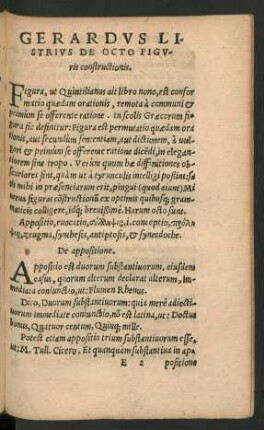 GERARDVS LI-
STRIVS DE OCTO FIGV-
ris constructionis.
Figura, ut Quintilianus ait libro nono, est confor
matio quædam orationis, remota à communi &
primùm se offerente ratione. In scolis Græcorum fi
gura sic definitur: Figura est permutatio quædam ora
tionis, aut secundum sententiam, aut dictionem, à uul-
gari & primùm se offerente ratione dicēdi, in elegan
tiorem sine tropo. Verùm quum hæ diffinitiones ob
scuriores sint, quàm ut à tyrunculis intelligi possint:
is mihi in præsentiarum erit, pingui (quod aiunt) Mi
nerua figuras cōstructionū ex optimis quibusq; gram
maticis colligere, idq; breuissimè. Harum octo sunt.
Appositio, euocatio, σύλληψις, i. conceptio,
zeugma, synthesis, antiptosis, & synecdoche.
De appositione.
Appositio est duorum substantiuorum, eiusdem
casus, quorum alterum declarat alterum, im
mediata coniunctio, ut: Flumen Rhenus.
Dico, Duorum substantiuorum: quia merè adiecti-
uorum immediata coniunctio, nō est latina, ut: Doctus
bonus, Quatuor centum, Quinq; mille.
Potest etiam appositio trium substantiuorum esse,
ut: M. Tull. Cicero. Et quanquàm substantiua in ap
E 2 positione